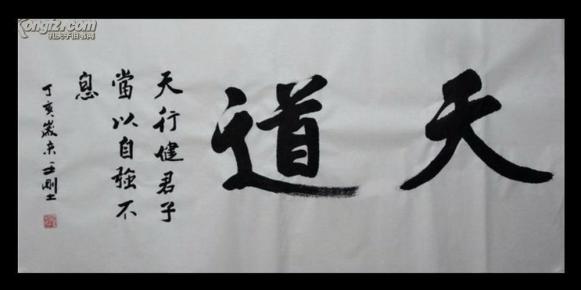 天道
天行健君子
當以自強不
息
丁亥歲末王剛
kongfz.com
孔夫子旧书网